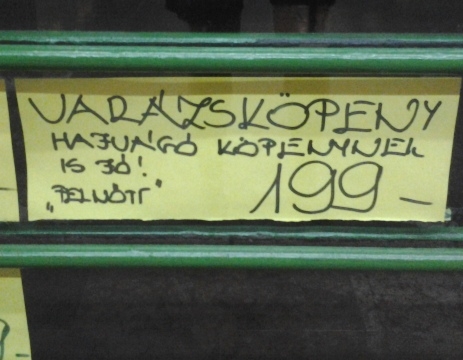 VARÁZSKÖPENY
HAJVÁGÓ KÖPENYNEK
IS JÓ!
„FELNŐTT"
199-